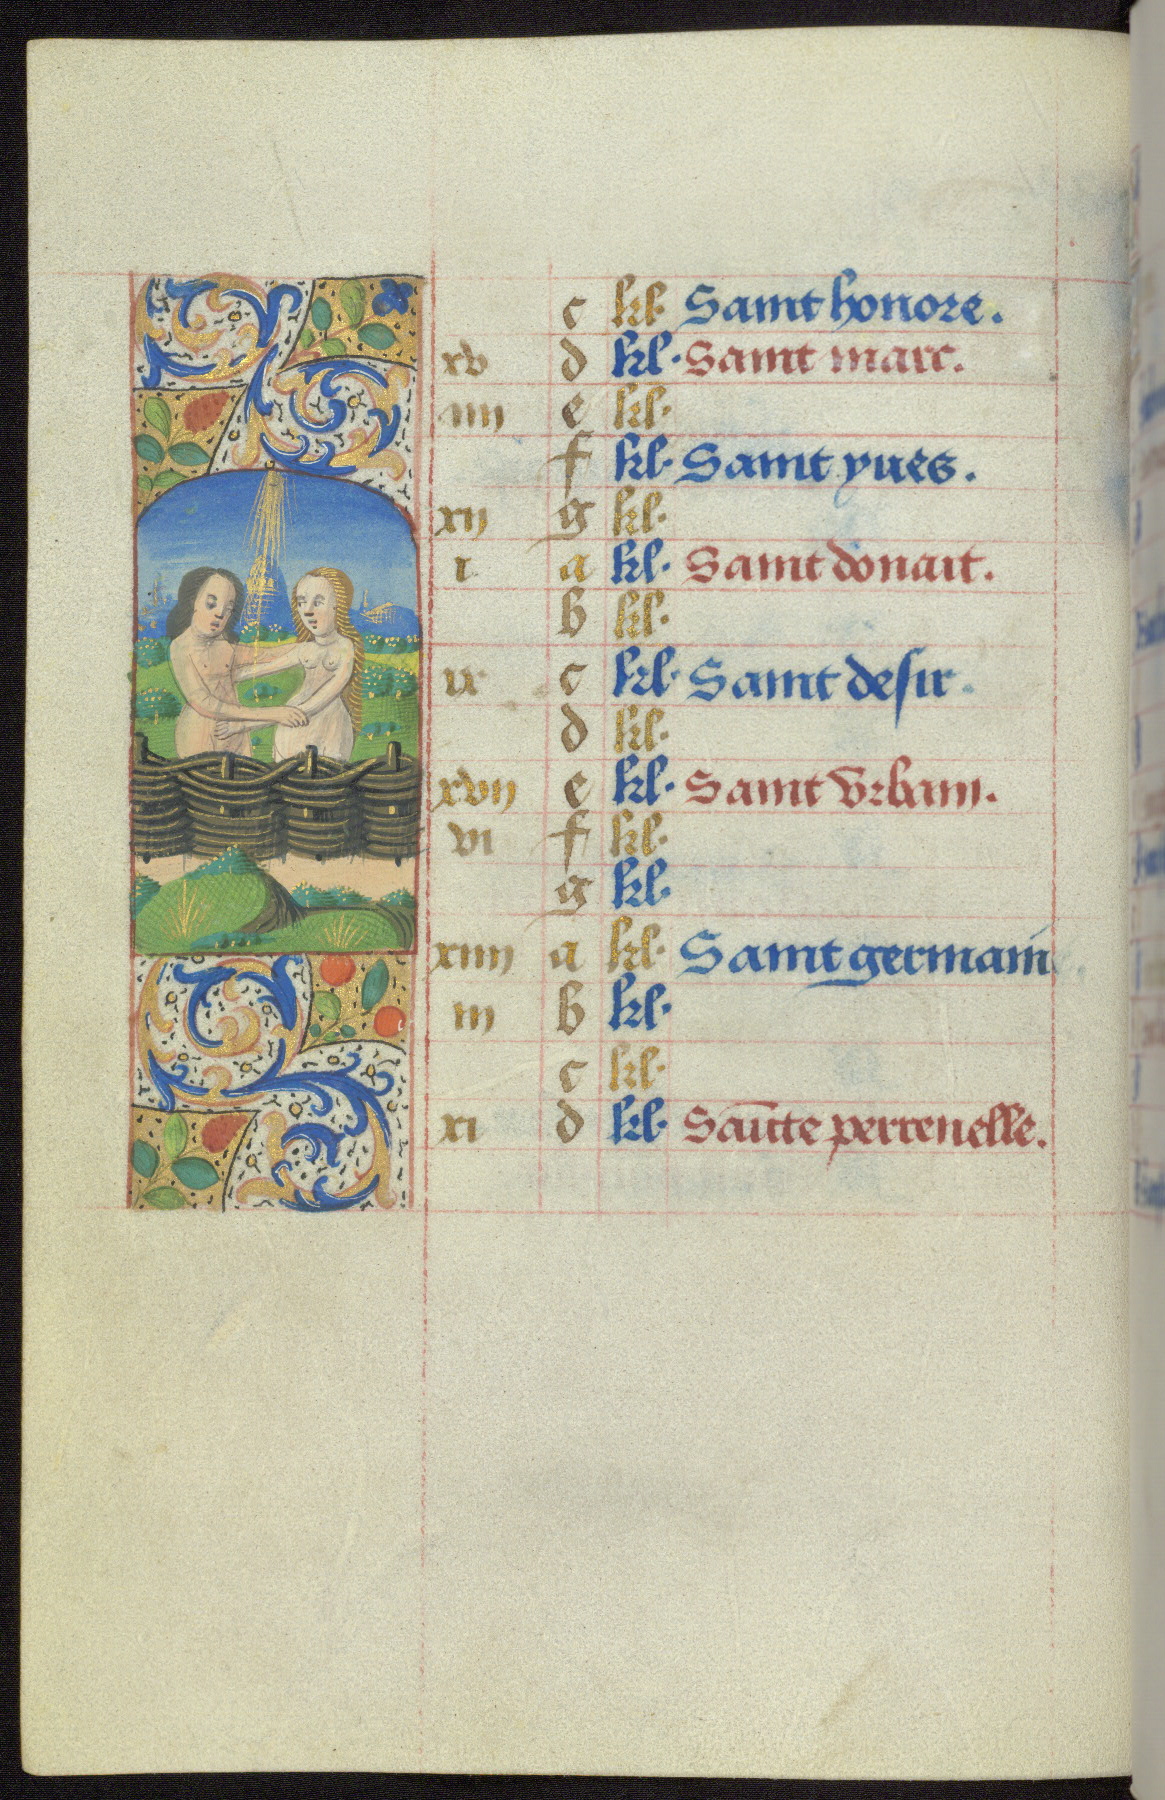 c kl. Saint honore.
xv d kl. Saint marc.
iiii e kl.
f kl. Saint yues.
xii g kl.
i a kl. Saint donait.
b kl.
ix c kl. Saint desir.
d kl.
xvii e kl. Saint Vrbain.
vi f kl.
g kl.
xiiii a kl. Saint germain
iii b kl.
c kl.
xi d kl. Saīcte perrenelle.